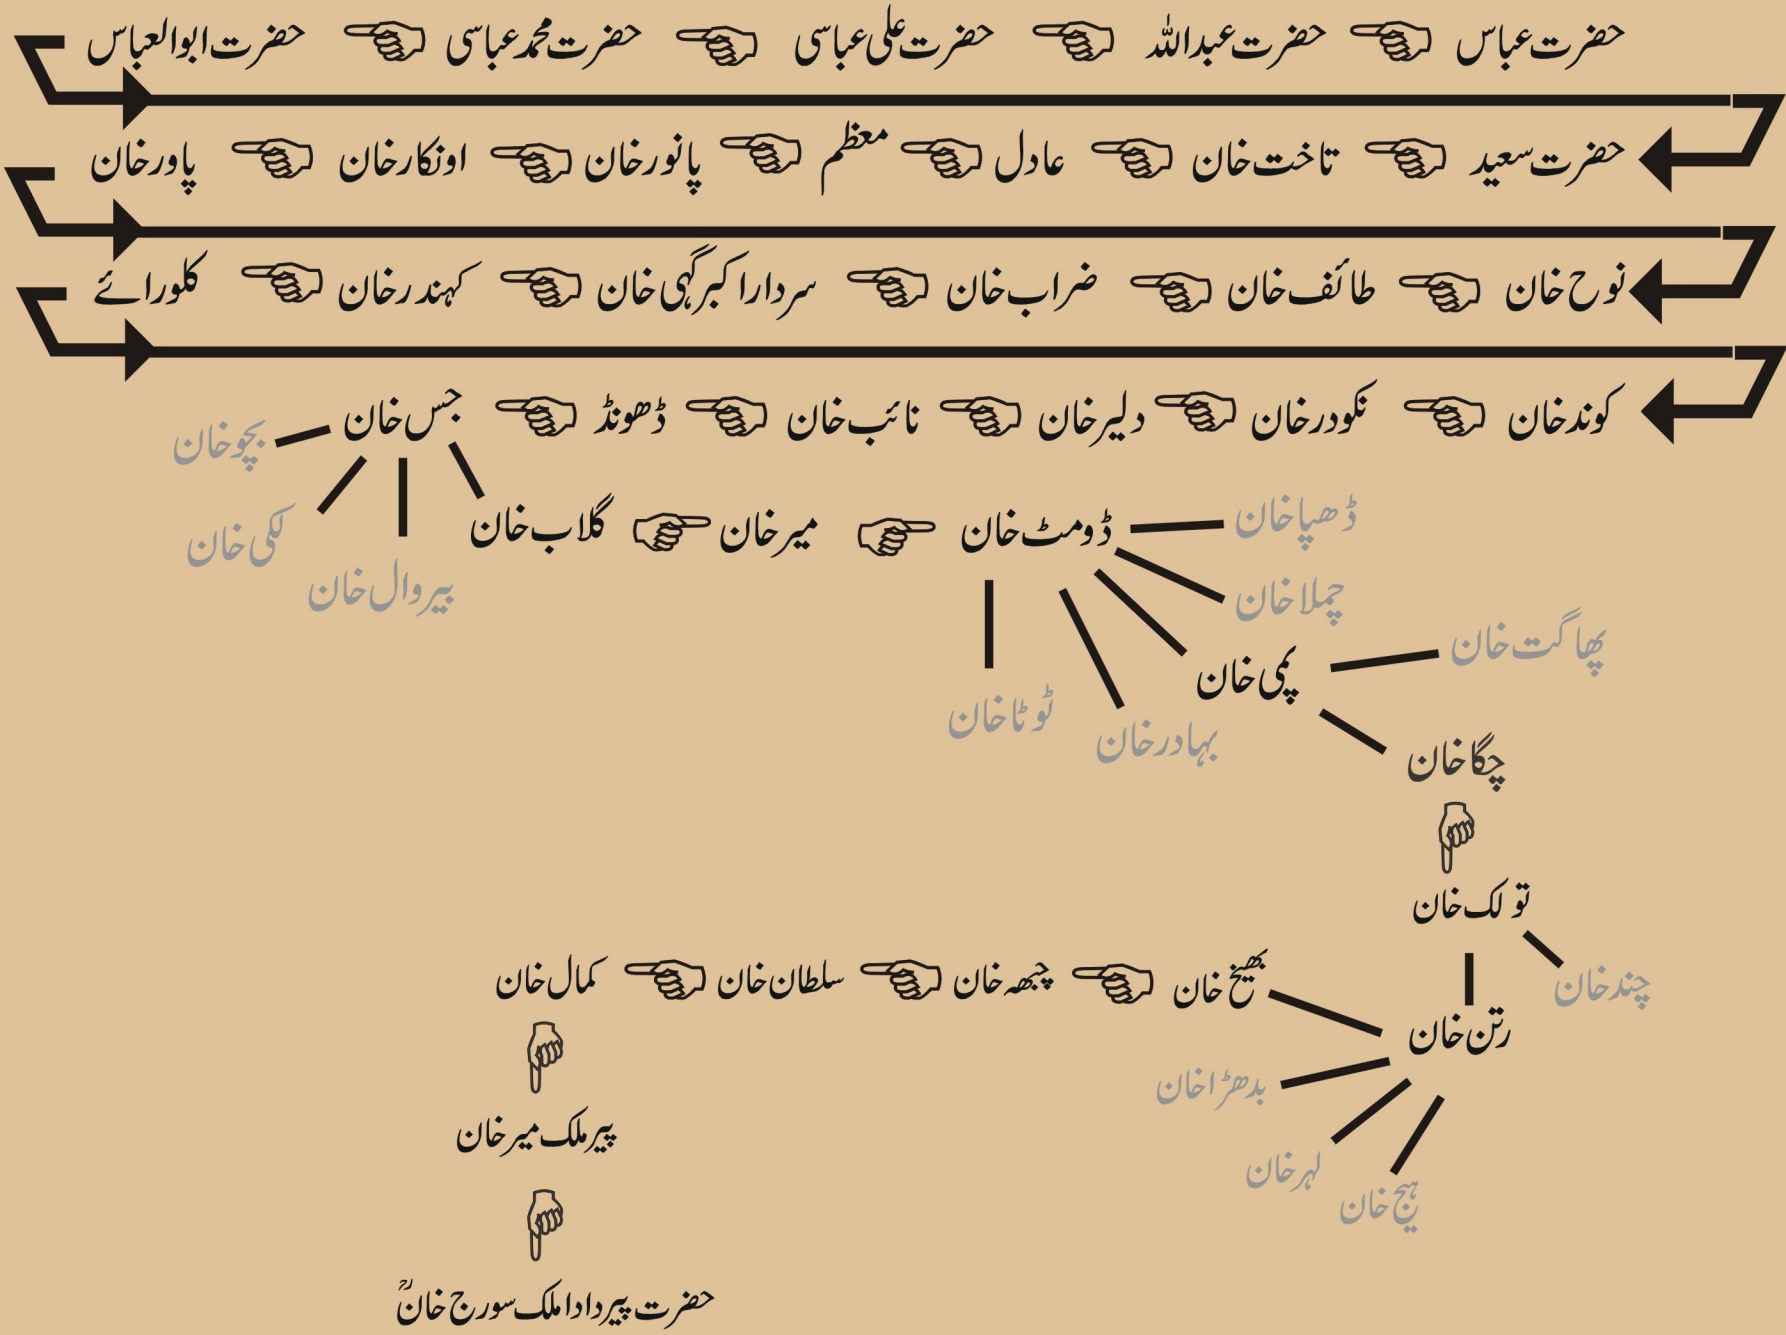 حضرت عباس حضرت عبداللہ حضرت علی عباسی حضرت محمد عباسی حضرت ابوالعباس
حضرت سعید تاخت خان عادل معظم پانور خان اونکار خان پاور خان
نوح خان طائف خان ضراب خان سردار اکبر گہی خان کہندر خان کلورائے
کوند خان نکودر خان دلیر خان نائب خان ڈھونڈ جس خان
بچو خان
لکی خان
بیروال خان
گلاب خان میر خان ڈومٹ خان ڈھپا خان
چملا خان
پمی خان پھاگت خان
ٹوٹا خان
بہادر خان
چگا خان
تولک خان
چند خان
رتن خان
بھیخ خان چبھہ خان سلطان خان کمال خان
بدھڑا خان
لہر خان
ہیج خان
پیر ملک میر خان
حضرت پیر دادا ملک سورج خانؒ